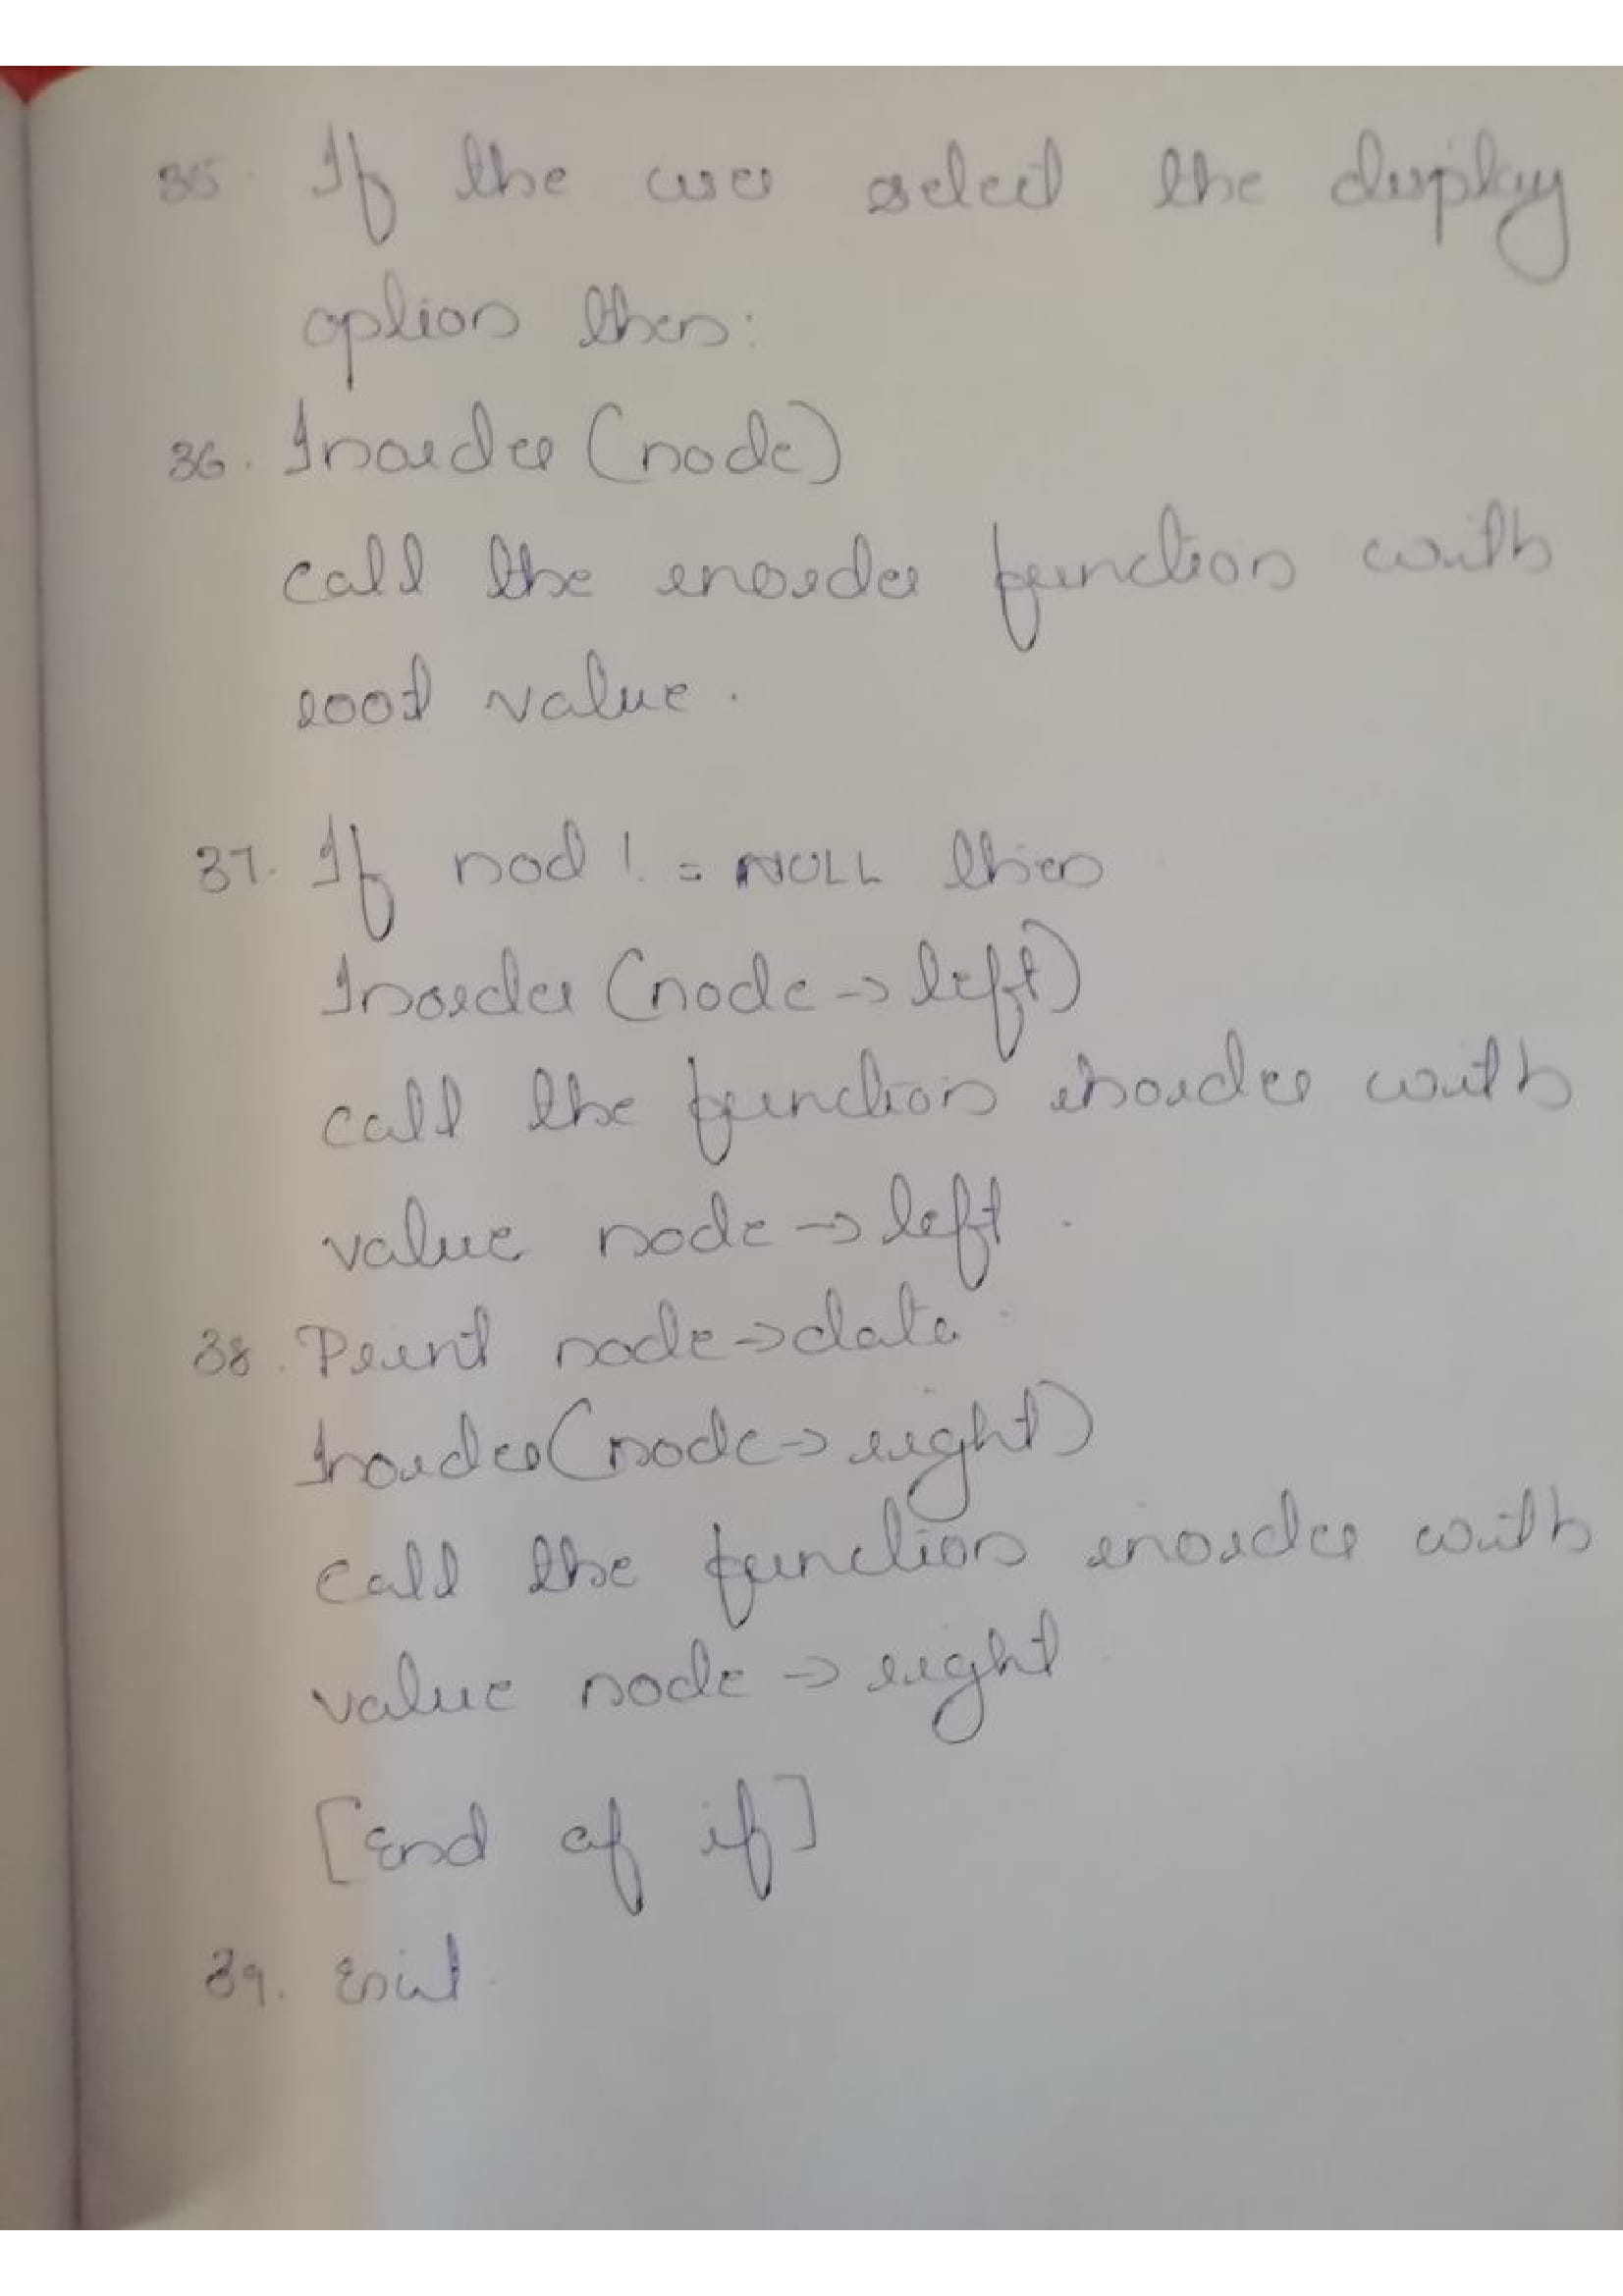 35. If the user select the display
option then:
36. Inorder (node)
call the inorder function with
root value.
37. If nod != NULL then
Inorder (node -> left)
call the function inorder with
value node -> left.
38. Print node -> data.
Inorder (node -> right)
call the function inorder with
value node -> right.
[End of if]
39. Exit.